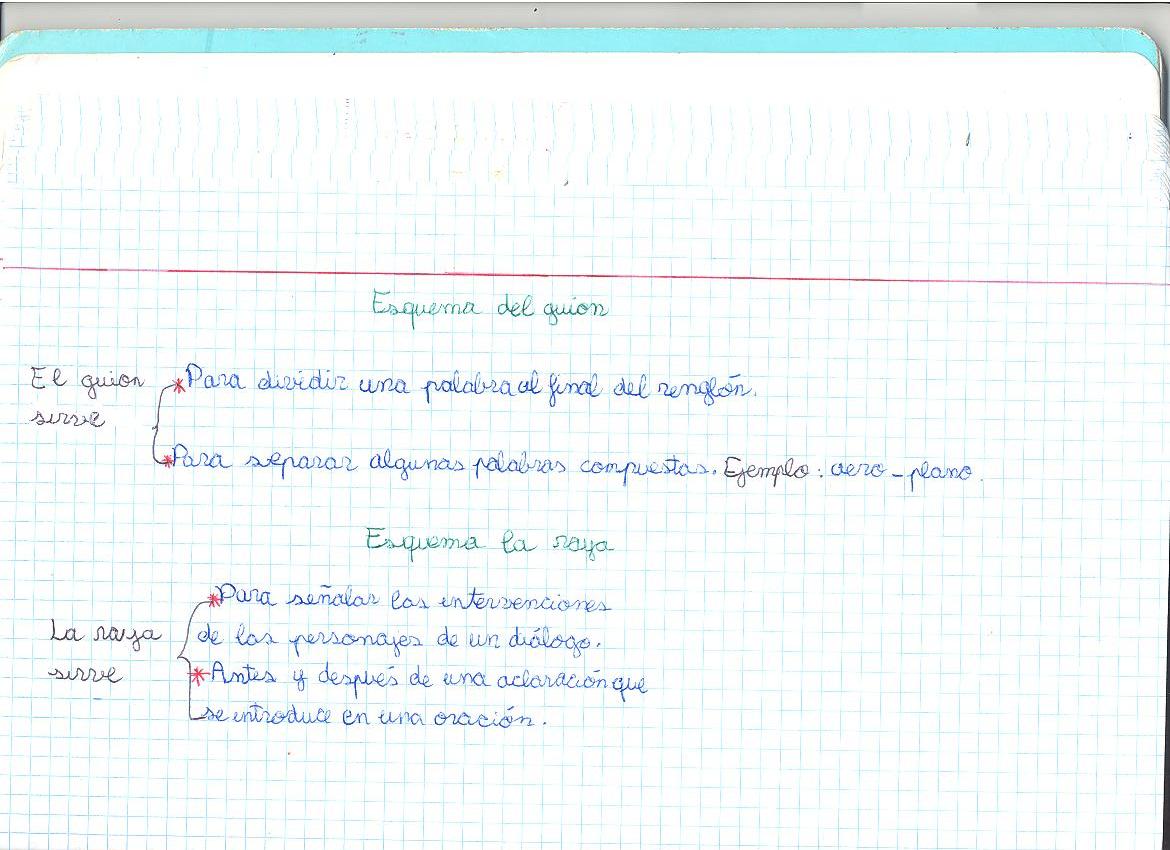 Esquema del guion
El guion
sirve
*Para dividir una palabra al final del renglón.
*Para separar algunas palabras compuestas. Ejemplo: aero-plano.
Esquema la raya
La raya
sirve
*Para señalar las intervenciones
de los personajes de un diálogo.
*Antes y después de una aclaración que
se introduce en una oración.